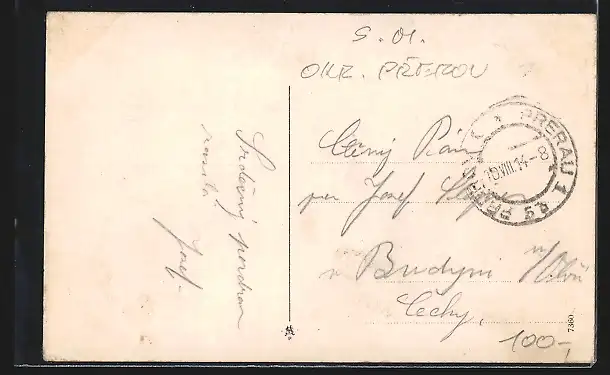 S. 01.
OKR. PŘEROV
Srdečný pozdrav
Josef
Ctěný Pán
pan Josef
v Budyni n/Ohří
Čechy,
PRERAU 1
10.VIII.14-8
7360
100-,